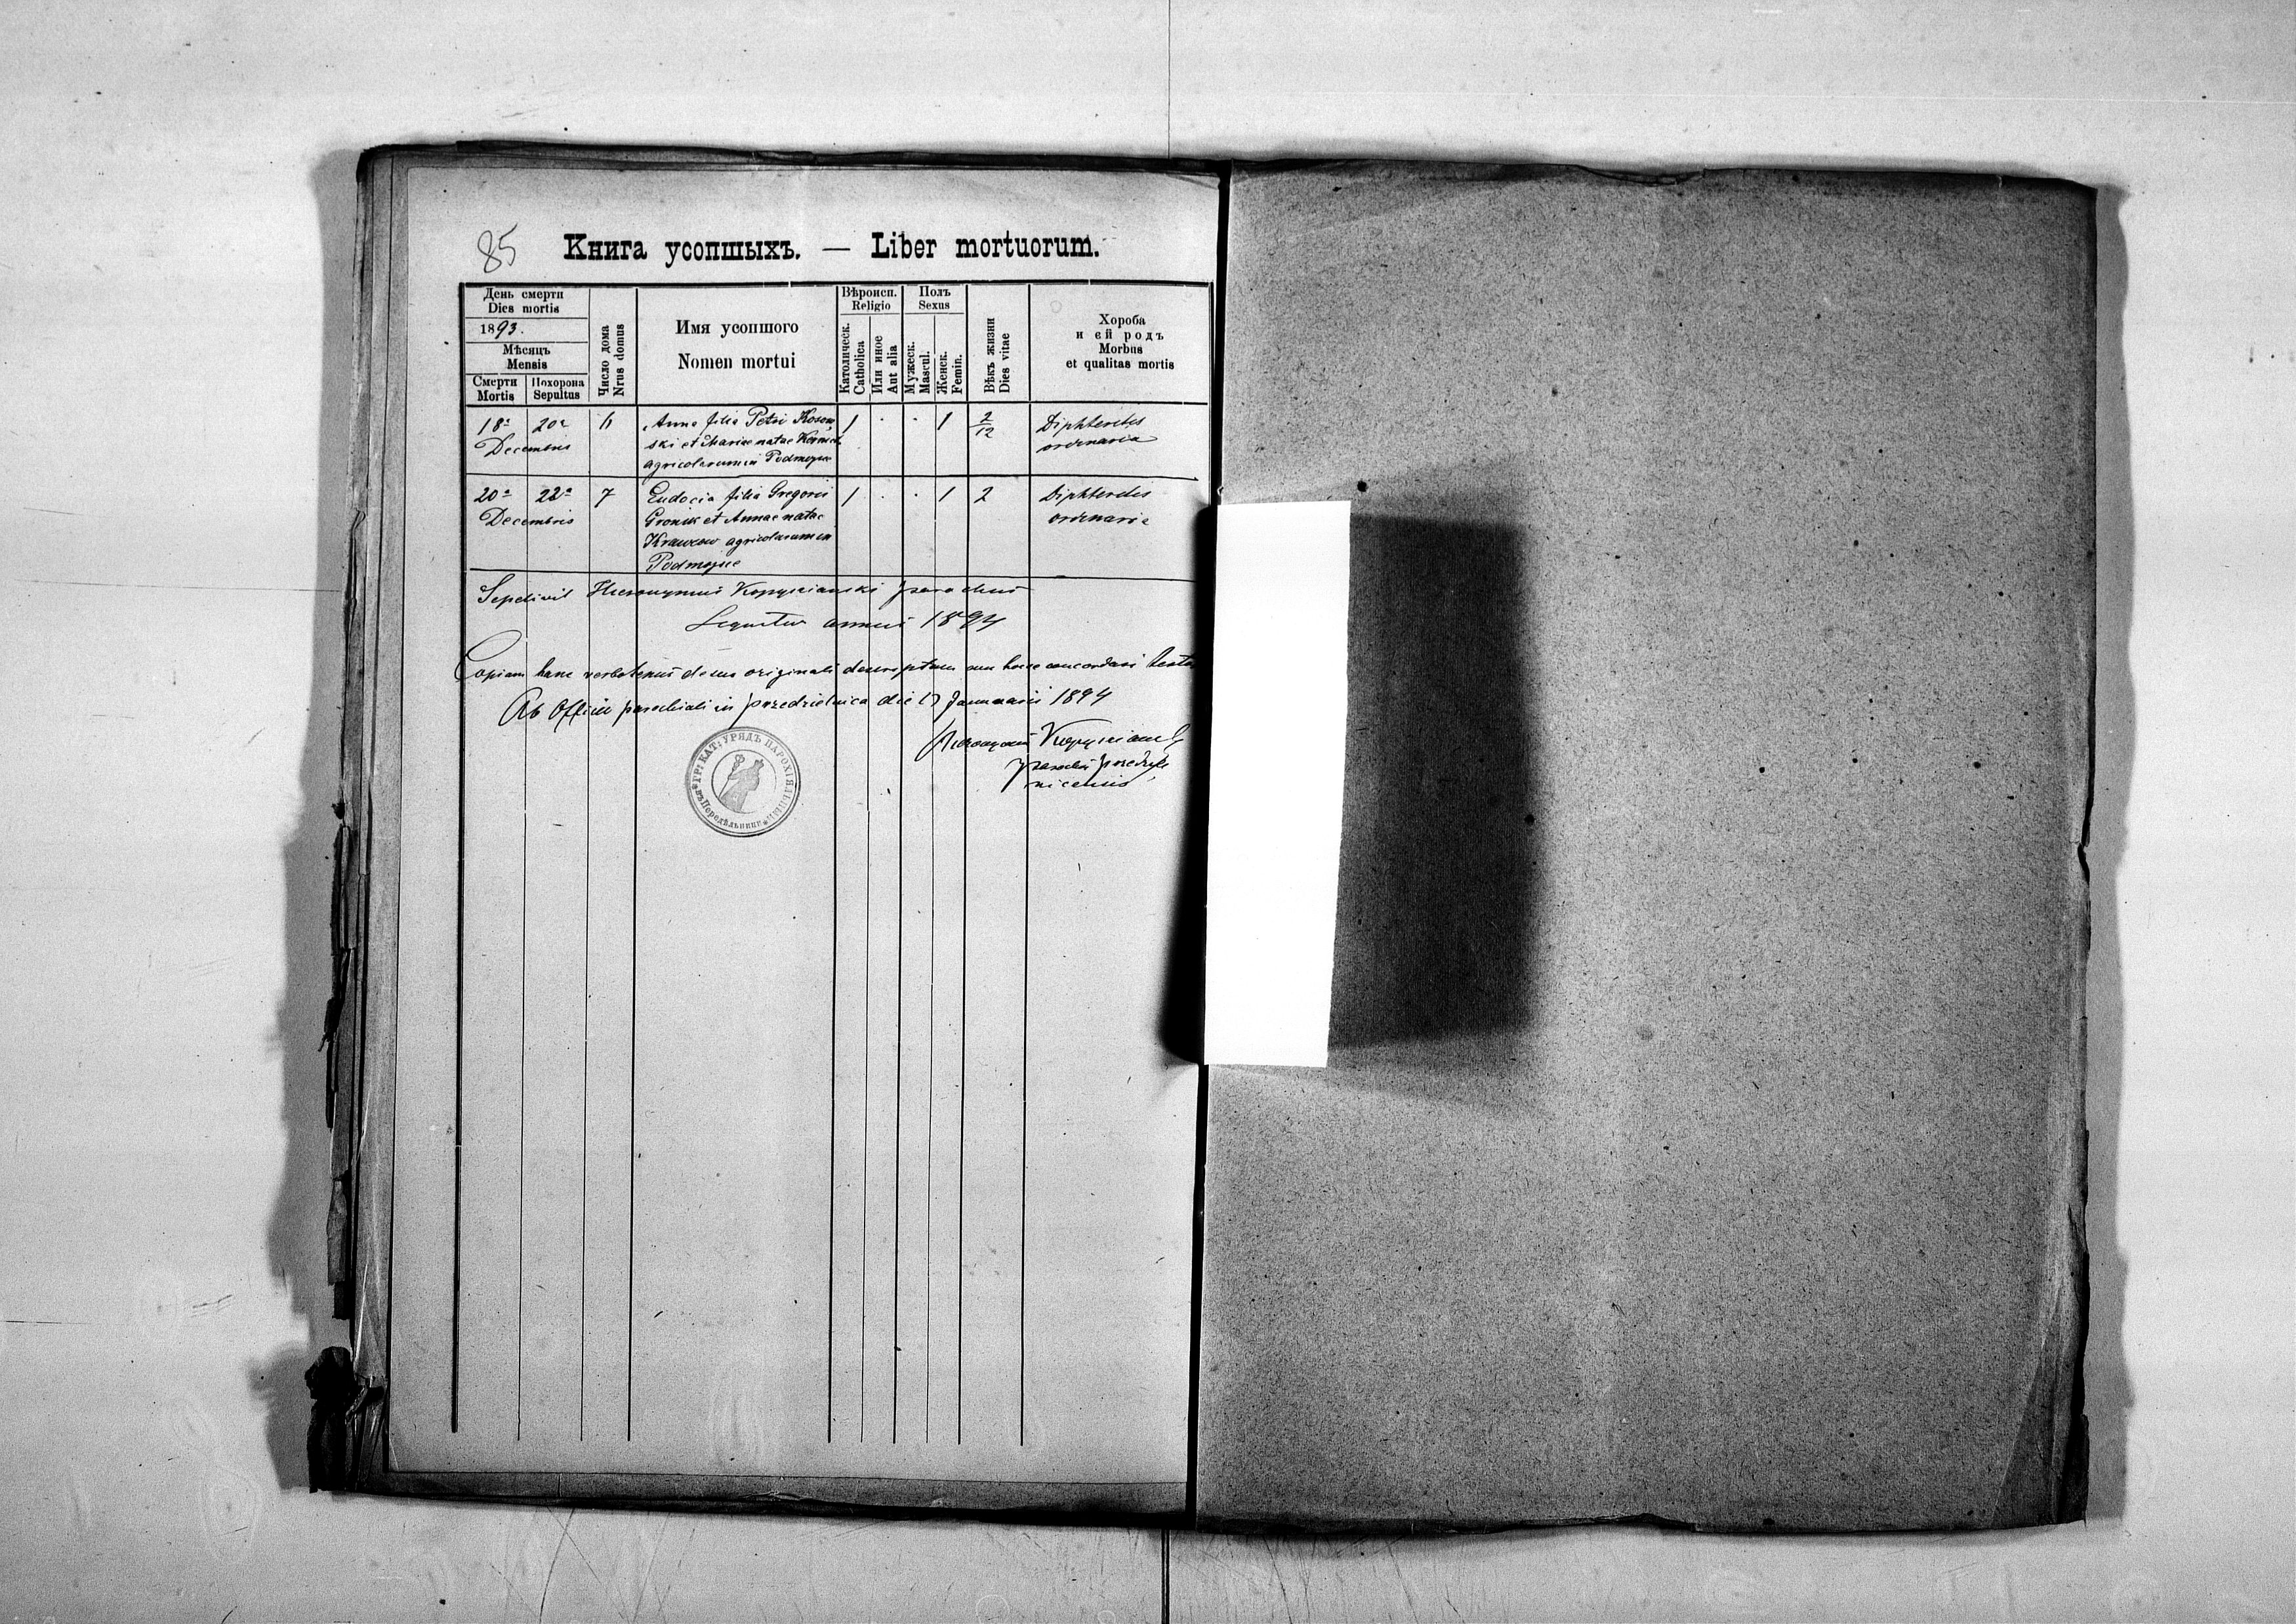 85 Книга усопшыхъ. — Liber mortuorum.
День смерти
Dies mortis
1893.
Мѣсяцъ
Mensis
Смерти
Mortis
Похорона
Sepultus
Число дома
Nrus domus
Имя усопшого
Nomen mortui
Вѣроисп.
Religio
Католическ.
Catholica
Или иное
Aut alia
Полъ
Sexus
Мужеск.
Mascul.
Женск.
Femin.
Вѣкъ жизни
Dies vitae
Хороба
и єй родъ
Morbus
et qualitas mortis
18a 20a 6 Anna filia Petri Kosow 1 . . 1 2/12 Diphteritis
Decembris ski et Mariae natae ordinaria
agricolarum in Podmojsce
20a 22a 7 Eudocia filia Gregorii 1 . . 1 2 Diphteritis
Decembris Gronik et Annae natae ordinaria
agricolarum in
Podmojsce
Sepelivit Hieronymus Kopyscianski parochus
Sequitur annus 1894
Copiam hanc verbotenus de suo originali descriptam cum hocce concordari
Ab Officio parochiali in Przedzielnica die 17 Januarii 1894
Hieronymus Kopyscianski
parochus Przedziel
nicensis
ГР: КАТ: УРЯДЪ ПАРОХІЯЛЬНЫЙ
въ Передѣльници